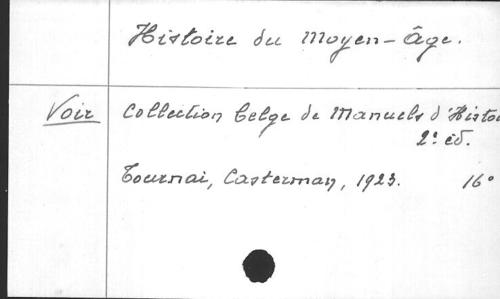 Histoire du Moyen-Âge.
Voir Collection belge de Manuels d'Histoi
2e éd.
Tournai, Casterman, 1923. 16°